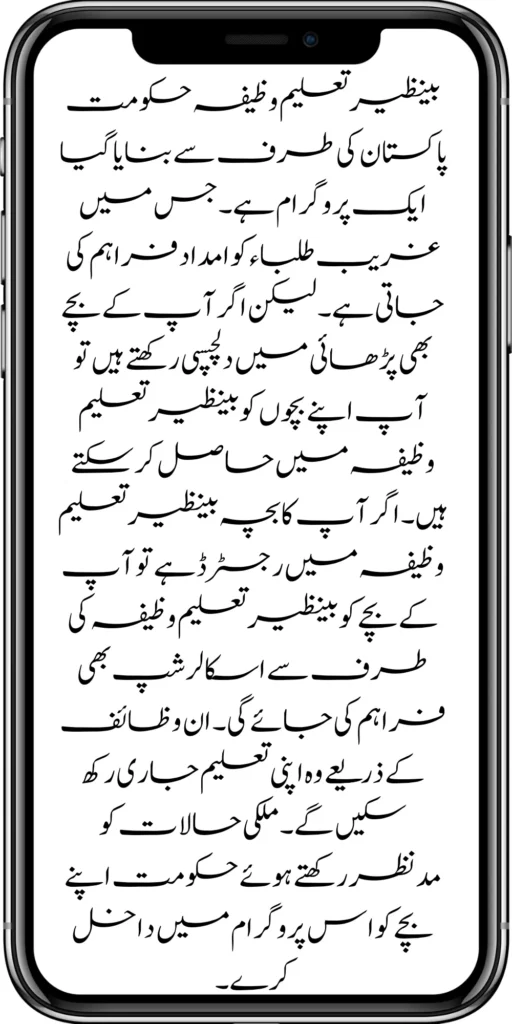 بینظیر تعلیم وظیفہ حکومت
پاکستان کی طرف سے بنایا گیا
ایک پروگرام ہے۔ جس میں
غریب طلباء کو امداد فراہم کی
جاتی ہے۔ لیکن اگر آپ کے بچے
بھی پڑھائی میں دلچسپی رکھتے ہیں تو
آپ اپنے بچوں کو بینظیر تعلیم
وظیفہ میں حاصل کر سکتے
ہیں۔ اگر آپ کا بچہ بینظیر تعلیم
وظیفہ میں رجسٹرڈ ہے تو آپ
کے بچے کو بینظیر تعلیم وظیفہ کی
طرف سے اسکالرشپ بھی
فراہم کی جائے گی۔ ان وظائف
کے ذریعے وہ اپنی تعلیم جاری رکھ
سکیں گے۔ ملکی حالات کو
مدنظر رکھتے ہوئے حکومت اپنے
بچے کو اس پروگرام میں داخل
کرے۔